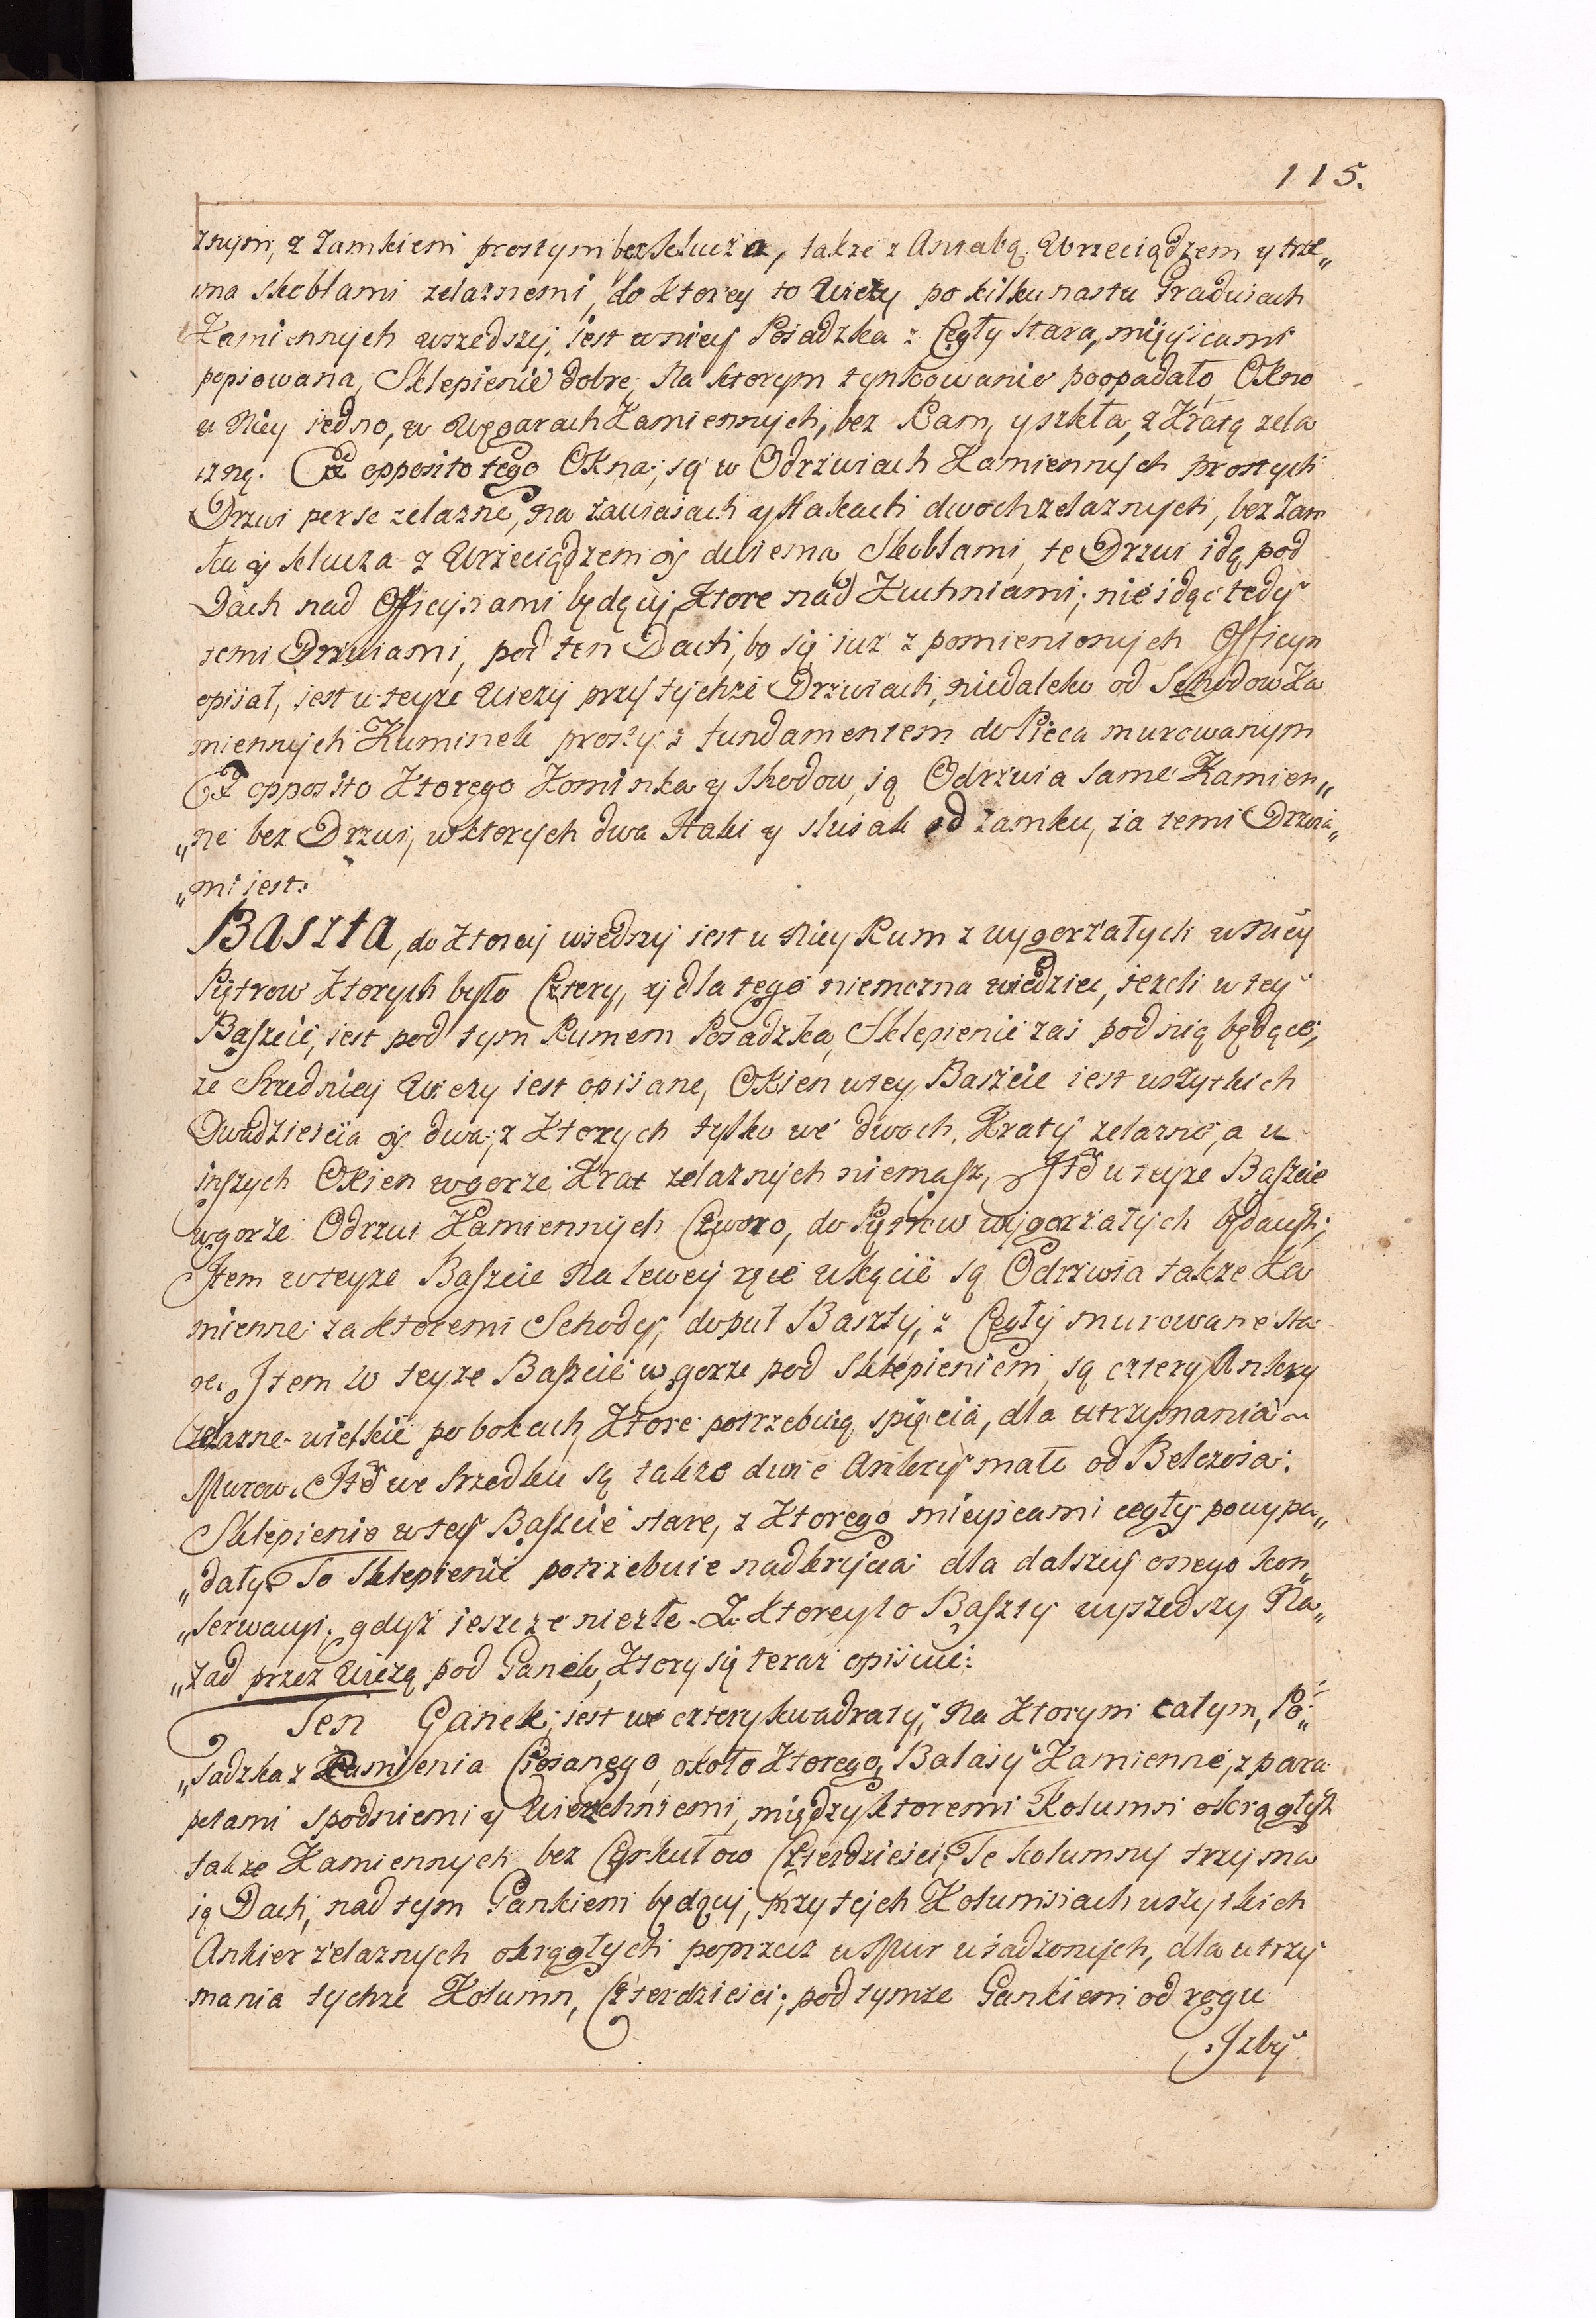 115.
znym, z Zamkiem prostym bez klucza, także z Antabą Wrzeciądzem y trze„
ma skoblami zelaznemi, do ktorey to Wieży po kilkunastu Gradusach
Kamiennych wszedszy, iest w niey Posadzka z Cegły stara, mieyscami
popsowana, Sklepienie dobre, na ktorym tynkowanie poopadało, Okno
w Niey iedno, w Węgarach Kamiennych, bez Ram, y szkła, z Kratą zela
zną. Ex opposito tego Okna, są w Odrzwiach Kamiennych prostych
Drzwi per se zelazne, na zawiasach y Hakach dwoch zelaznych, bez Zam
ku y klucza z Wrzeciądzem y dwiema Skoblami, te Drzwi idą pod
Dach nad Officynami będący, ktore nad Kuchniami; nie idąc tedy
temi Drzwiami, pod ten Dach, bo się iuż z pomienionych Officyn
opisał, iest w teyże Wieży przy tychże Drzwiach, niedaleko od Schodow Ka
miennych Kuminek prosty z fundamentem do Pieca murowanym
Ex opposito ktorego Kominka y Skodow, są Odrzwia same Kamien„
„ne bez Drzwi, w ktorych dwa Haki y słusak od Zamku, za temi Drzwia„
„mi iest.
Baszta, do ktorey wszedszy iest w Niey Rum z wygorzałych w niey
Pętrow ktorych było Cztery, y dla tego niemozna wiedziec, iezeli w tey
Baszcie, iest pod tym Rumem Posadzka, Sklepienie zas pod nią będące,
ze Sredniey Wiezy iest opisane, Okien w tey Baszcie iest wszytkich
Dwadziescia y dwa; z ktorych tylko we dwoch, Kraty zelazne, a u
inszych Okien w gorze Krat zelaznych niemasz, Itd w teyze Baszcie
w gorze Odrzwi Kamiennych Czworo, do Pętrow wygorzałych będących;
Item w teyze Baszcie Na lewey ręce w kącie są Odrzwia takze Ka
mienne za ktoremi Schody, do puł Baszty, z Cegły murowane sta
re. Item w teyze Baszcie w gorze pod Sklepieniem, są cztery Ankry
zelazne wielkie po bokach, ktore potrzebuią spięcia, dla utrzymania
Murow. Itd we srzedku są takze dwie Ankry małe od Belczoia:
Sklepienie w tey Baszcie stare, z ktorego mieyscami cegły powypa„
„dały. To Sklepienie potrzebuie nadkrycia dla dalszey onego kon„
„serwacyi, gdyż ieszcze niezłe. Z ktorey to Baszty wyszedszy Na„
„zad przez Wieżą pod Ganek, ktory się teraz opisuie:
Ten Ganek, iest we cztery kwadraty, Na ktorym całym, Po„
„sadzka z Kamienia Ciosanego, około ktorego, Balasy Kamienne, z para
petami spodniemi y Wierzchniemi, między ktoremi Kolumn okrągłych
takze Kamiennych bez Cyrkułow Czterdzieści, Te kolumny trzyma
ią Dach, nad tym Gankiem będący, przy tych Kolumnach wszytkich
Ankier zelaznych okrągłych poprzecz w Mur wsadzonych, dla utrzy
mania tychże Kolumn, Czterdzieści; pod tymże Gankiem od rogu
Izby